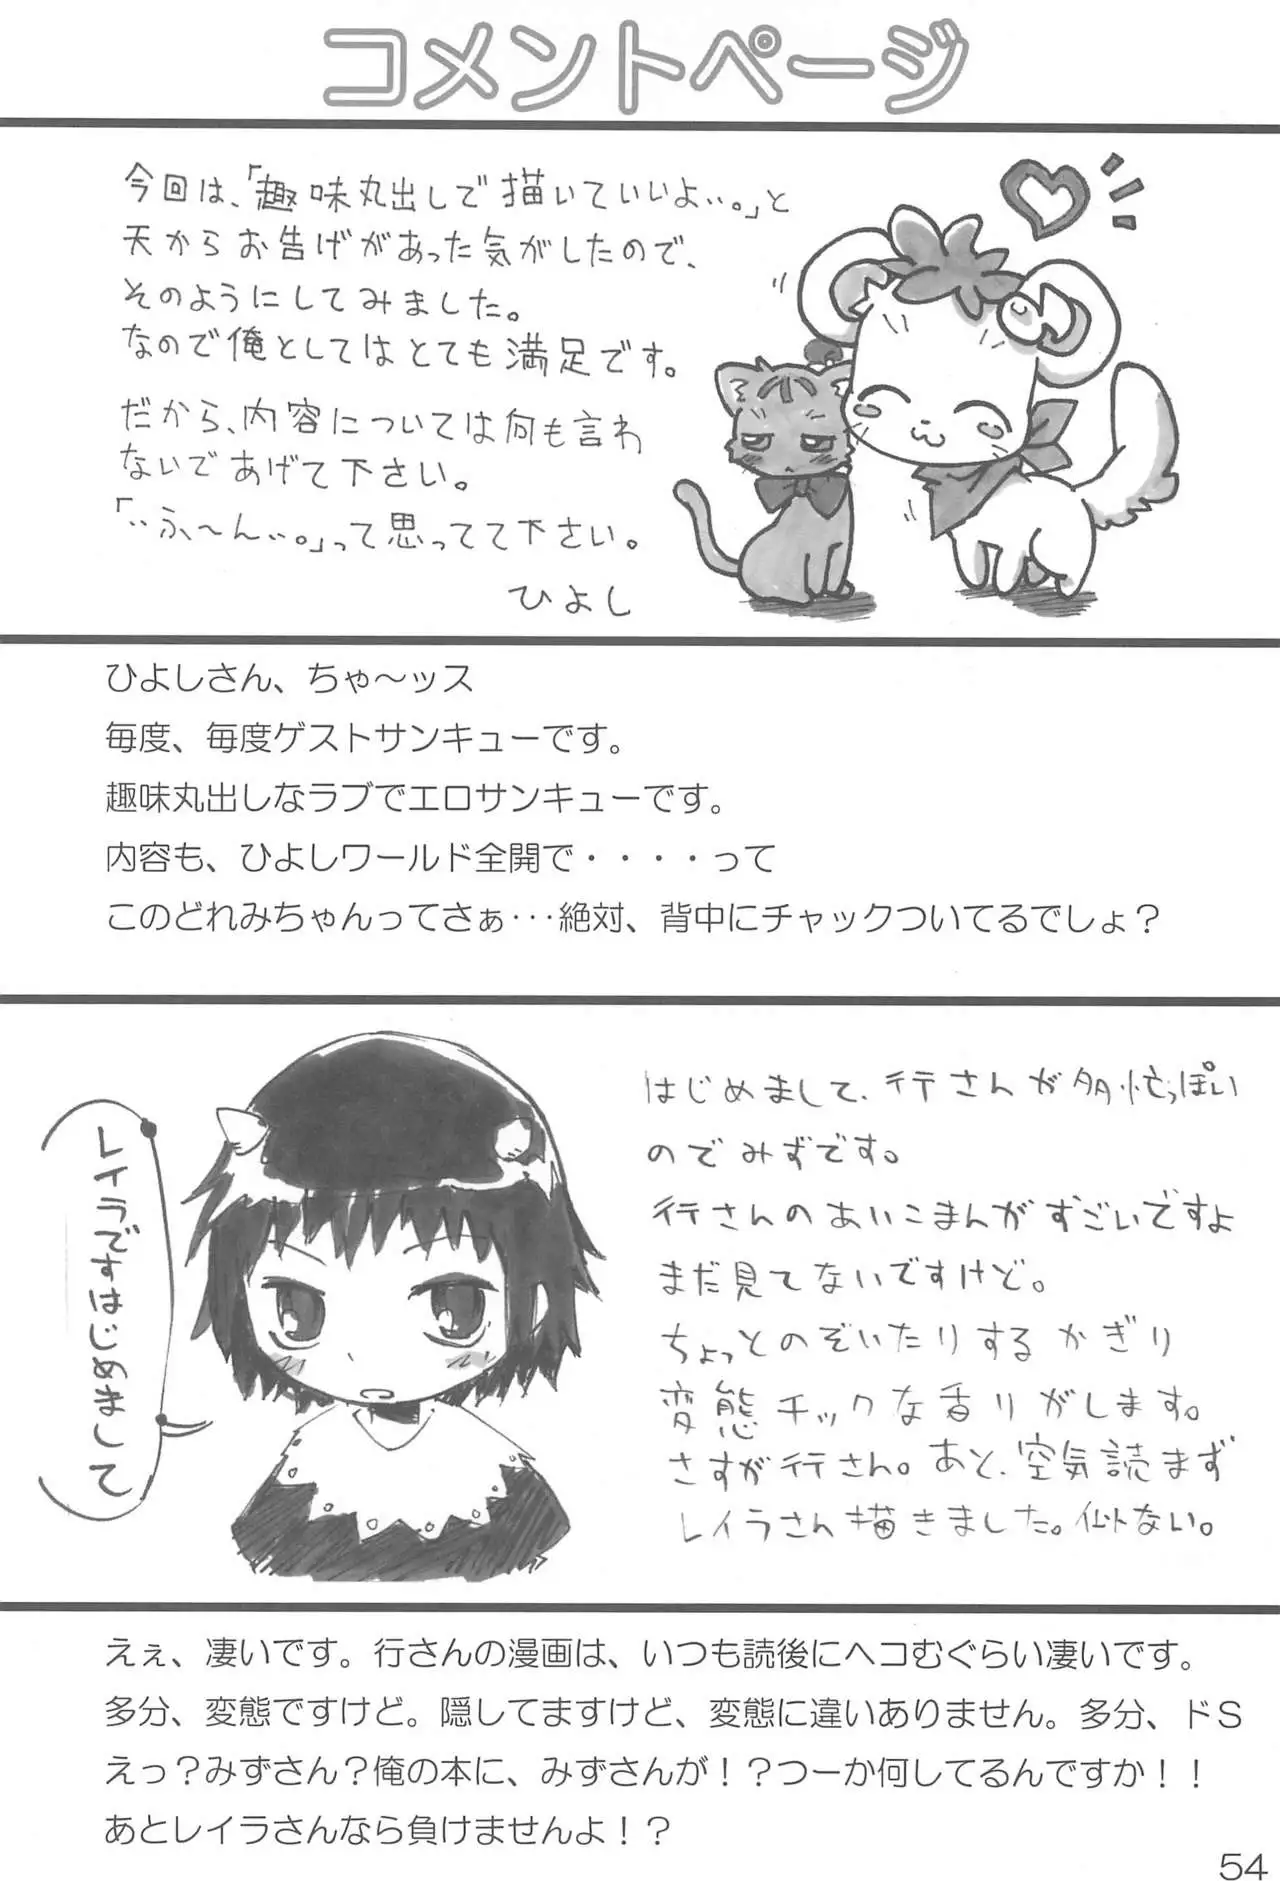 コメントページ
今回は、「趣味丸出しで描いていいよ…。」と
天からお告げがあった気がしたので、
そのようにしてみました。
なので俺としてはとても満足です。
だから、内容については何も言わ
ないであげて下さい。
「…ふ～ん…。」って思ってて下さい。
ひよし
ひよしさん、ちゃ～ッス
毎度、毎度ゲストサンキューです。
趣味丸出しなラブでエロサンキューです。
内容も、ひよしワールド全開で・・・・って
このどれみちゃんってさぁ･･･絶対、背中にチャックついてるでしょ？
レイラですはじめまして
はじめまして、行さんが多忙っぽい
のでみずです。
行さんのあいこまんがすごいですよ
まだ見てないですけど。
ちょっとのぞいたりするかぎり
変態チックな香りがします。
さすが行さん。あと、空気読まず
レイラさん描きました。似てない。
えぇ、凄いです。行さんの漫画は、いつも読後にヘコむぐらい凄いです。
多分、変態ですけど。隠してますけど、変態に違いありません。多分、ドＳ
えっ？みずさん？俺の本に、みずさんが！？つーか何してるんですか！！
あとレイラさんなら負けませんよ！？
54